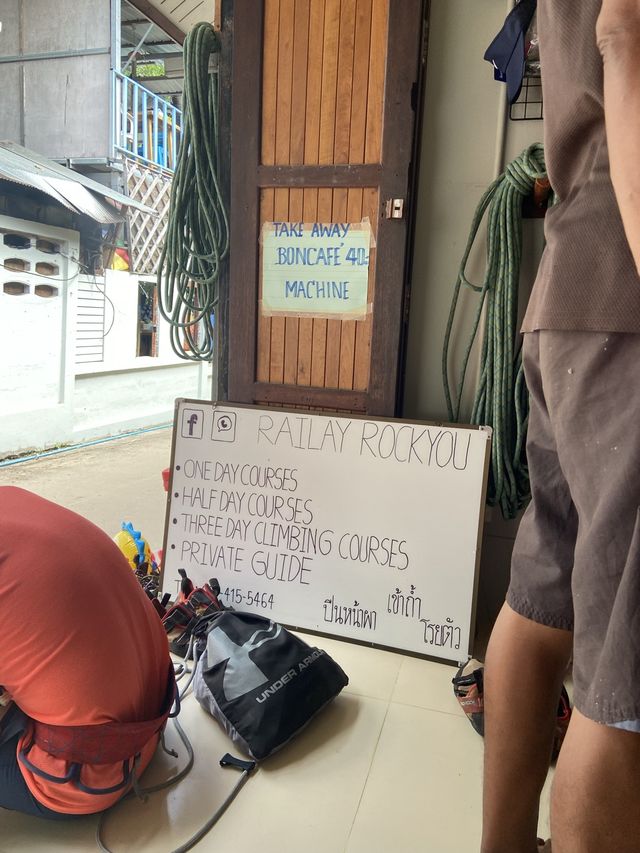 TAKE AWAY
BONCAFE' 40.-
MACHINE
RAILAY ROCKYOU
• ONE DAY COURSES
• HALF DAY COURSES
• THREE DAY CLIMBING COURSES
• PRIVATE GUIDE
-415-5464
ปีนหน้าผา เข้าถ้ำ
โรยตัว
UNDER ARMOUR